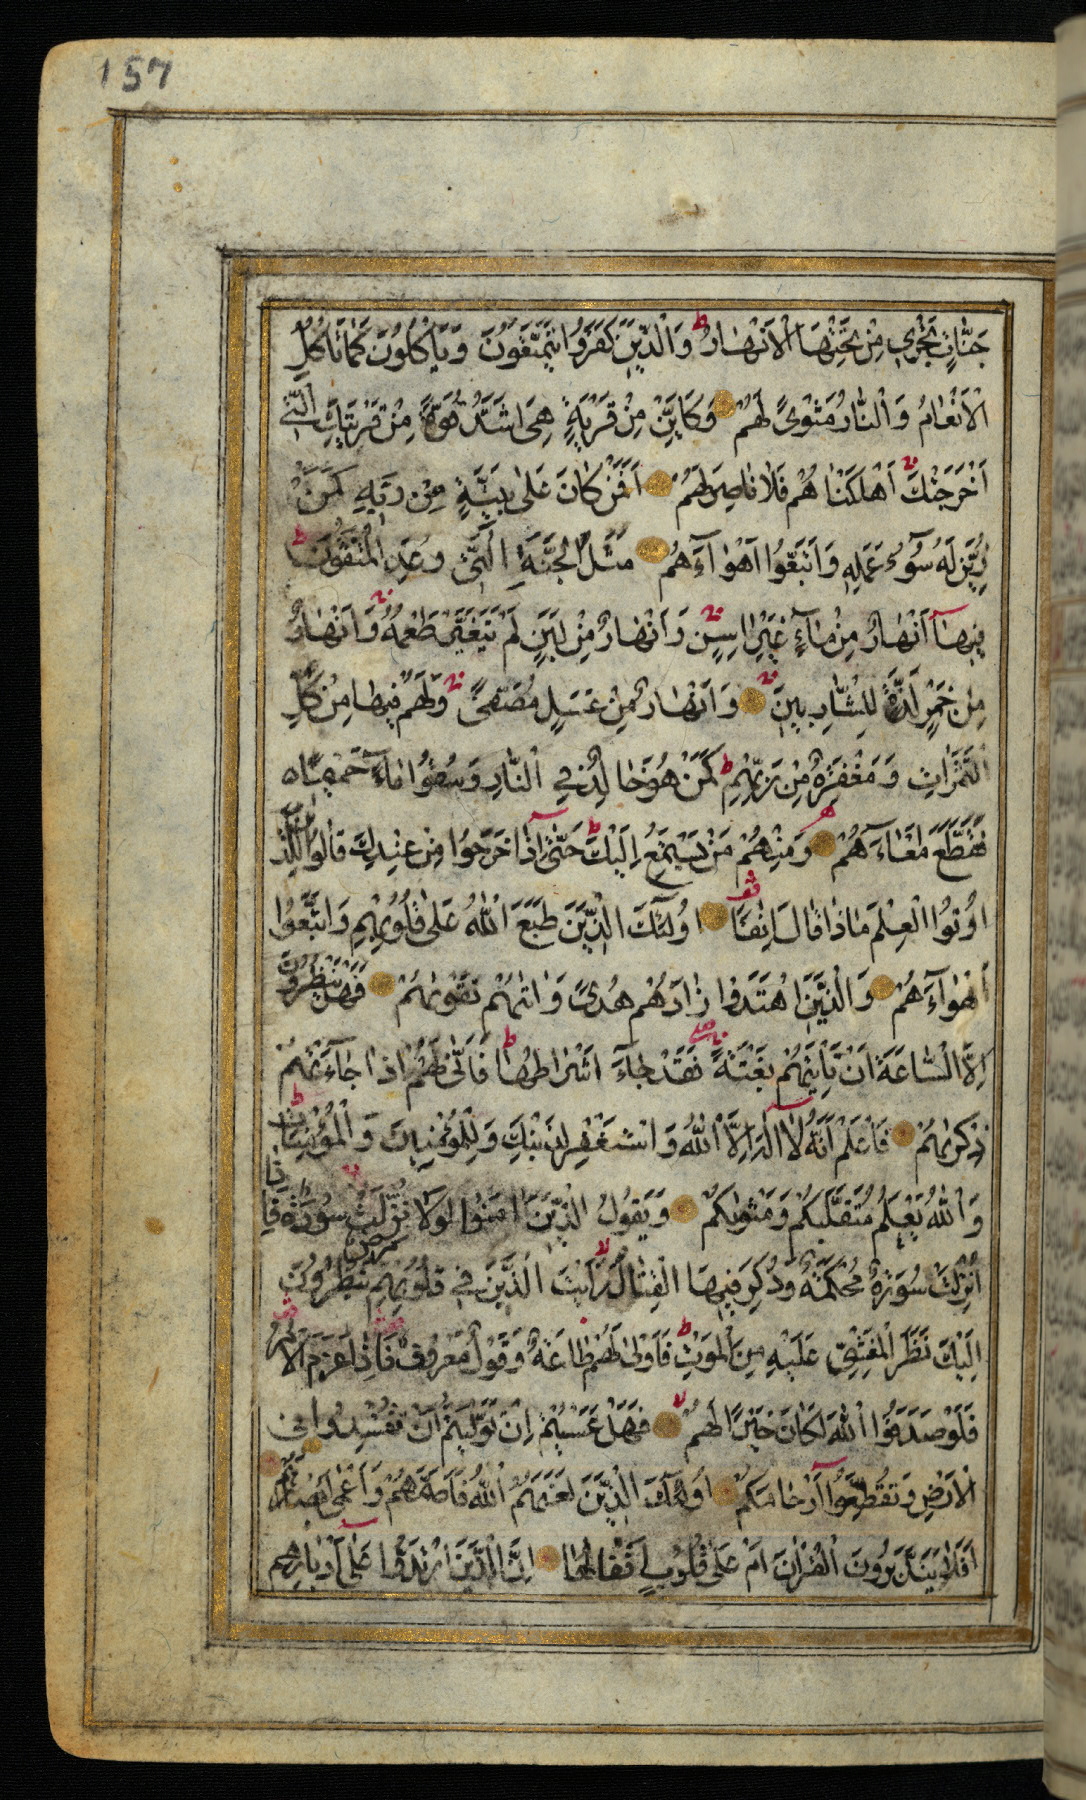 157
جَنَّاتٍ تَجْرِي مِنْ تَحْتِهَا الْاَنْهَارُ ط وَالَّذِينَ كَفَرُوا يَتَمَتَّعُونَ وَيَاْكُلُونَ كَمَا تَاْكُلُ
الْاَنْعَامُ وَالنَّارُ مَثْوىً لَهُمْ وَكَاَيِّنْ مِنْ قَرْيَةٍ هِيَ اَشَدُّ قُوَّةً مِنْ قَرْيَتِكَ الَّتِي
اَخْرَجَتْكَ اَهْلَكْنَاهُمْ فَلَا نَاصِرَ لَهُمْ اَفَمَنْ كَانَ عَلٰى بَيِّنَةٍ مِنْ رَبِّهِ كَمَنْ
زُيِّنَ لَهُ سُوٓءُ عَمَلِهِ وَاتَّبَعُوا اَهْوَآءَهُمْ مَثَلُ الْجَنَّةِ الَّتِي وُعِدَ الْمُتَّقُونَ ط
فِيهَا اَنْهَارٌ مِنْ مَآءٍ غَيْرِ اٰسِنٍ وَاَنْهَارٌ مِنْ لَبَنٍ لَمْ يَتَغَيَّرْ طَعْمُهُ وَاَنْهَارٌ
مِنْ خَمْرٍ لَذَّةٍ لِلشَّارِبِينَ وَاَنْهَارٌ مِنْ عَسَلٍ مُصَفًّى وَلَهُمْ فِيهَا مِنْ كُلِّ
الثَّمَرَاتِ وَمَغْفِرَةٌ مِنْ رَبِّهِمْ ط كَمَنْ هُوَ خَالِدٌ فِي النَّارِ وَسُقُوا مَآءً حَمِيمًا
فَقَطَّعَ اَمْعَآءَهُمْ وَمِنْهُمْ مَنْ يَسْتَمِعُ اِلَيْكَ ط حَتّٰى اِذَا خَرَجُوا مِنْ عِنْدِكَ قَالُوا لِلَّذِينَ
اُوتُوا الْعِلْمَ مَاذَا قَالَ اٰنِفًا اُولٰٓئِكَ الَّذِينَ طَبَعَ اللّٰهُ عَلٰى قُلُوبِهِمْ وَاتَّبَعُوا
اَهْوَآءَهُمْ وَالَّذِينَ اهْتَدَوْا زَادَهُمْ هُدىً وَاٰتٰهُمْ تَقْوٰىهُمْ فَهَلْ يَنْظُرُونَ
اِلَّا السَّاعَةَ اَنْ تَاْتِيَهُمْ بَغْتَةً فَقَدْ جَآءَ اَشْرَاطُهَا ط فَاَنّٰى لَهُمْ اِذَا جَآءَتْهُمْ
ذِكْرٰىهُمْ فَاعْلَمْ اَنَّهُ لَا اِلٰهَ اِلَّا اللّٰهُ وَاسْتَغْفِرْ لِذَنْبِكَ وَلِلْمُؤْمِنِينَ وَالْمُؤْمِنَاتِ ط
وَاللّٰهُ يَعْلَمُ مُتَقَلَّبَكُمْ وَمَثْوٰىكُمْ وَيَقُولُ الَّذِينَ اٰمَنُوا لَوْلَا نُزِّلَتْ سُورَةٌ فَاِذَا
اُنْزِلَتْ سُورَةٌ مُحْكَمَةٌ وَذُكِرَ فِيهَا الْقِتَالُ لا رَاَيْتَ الَّذِينَ فِي قُلُوبِهِمْ مَرَضٌ يَنْظُرُونَ
اِلَيْكَ نَظَرَ الْمَغْشِيِّ عَلَيْهِ مِنَ الْمَوْتِ ط فَاَوْلٰى لَهُمْ طَاعَةٌ وَقَوْلٌ مَعْرُوفٌ فَاِذَا عَزَمَ الْاَمْرُ
فَلَوْ صَدَقُوا اللّٰهَ لَكَانَ خَيْرًا لَهُمْ لا فَهَلْ عَسَيْتُمْ اِنْ تَوَلَّيْتُمْ اَنْ تُفْسِدُوا فِي
الْاَرْضِ وَتُقَطِّعُوا اَرْحَامَكُمْ اُولٰٓئِكَ الَّذِينَ لَعَنَهُمُ اللّٰهُ فَاَصَمَّهُمْ وَاَعْمٰى اَبْصَارَهُمْ
اَفَلَا يَتَدَبَّرُونَ الْقُرْاٰنَ اَمْ عَلٰى قُلُوبٍ اَقْفَالُهَا اِنَّ الَّذِينَ ارْتَدُّوا عَلٰى اَدْبَارِهِمْ